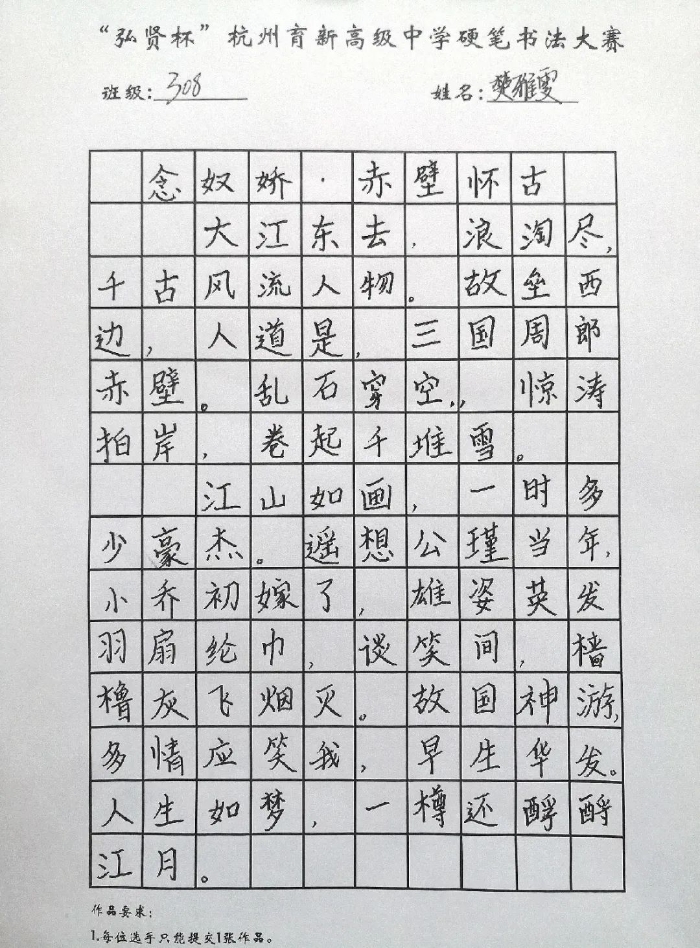 “弘贤杯”杭州育新高级中学硬笔书法大赛
班级:308 姓名:樊雅雯
念奴娇·赤壁怀古
大江东去，浪淘尽，
千古风流人物。故垒西
边，人道是，三国周郎
赤壁。乱石穿空，，惊涛
拍岸，卷起千堆雪。
江山如画，一时多
少豪杰。遥想公瑾当年，
小乔初嫁了，雄姿英发
羽扇纶巾，谈笑间，樯
橹灰飞烟灭。故国神游，
多情应笑我，早生华发。
人生如梦，一樽还酹酹
江月。
作品要求：
1.每位选手只能提交1张作品。